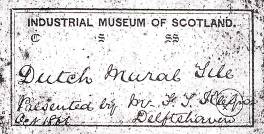 INDUSTRIAL MUSEUM OF SCOTLAND.
C S SS
Dutch Mural Tile
Presented by Mr F. S.
Oct 18
Delfshaven